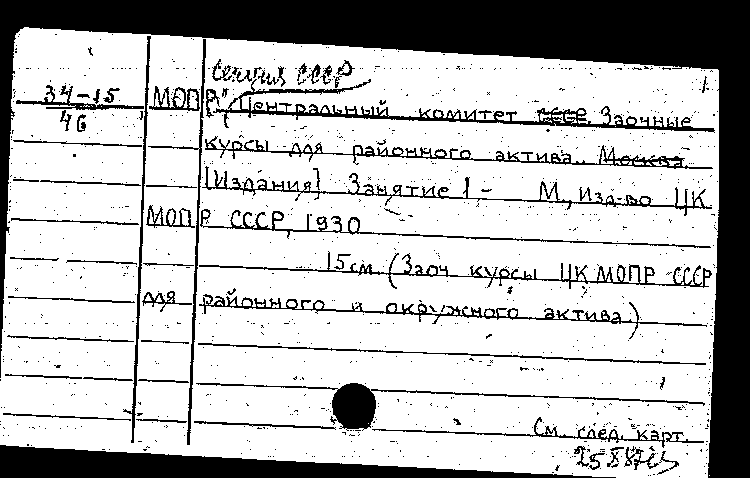 секция СССР
34-15 МОПР, Центральный комитет СССР. Заочные
46
курсы для районного актива. Москва.
[Издания]. Занятие 1 - М., Изд-во ЦК
МОПР СССР, 1930
15см. (Заоч курсы ЦК МОПР СССР
для районного и окружного актива)
См. след. карт.